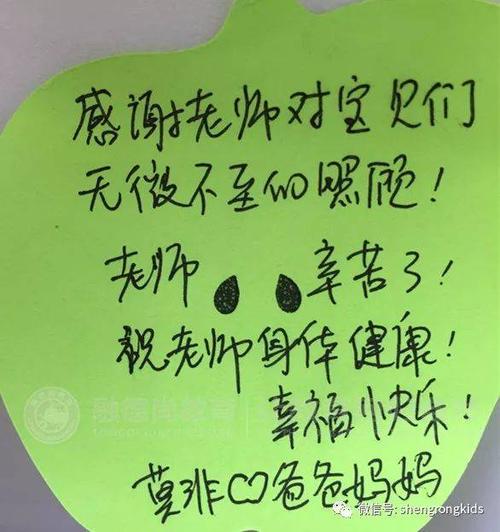 感谢老师对宝贝们
无微不至的照顾！
老师 辛苦了！
祝老师身体健康！
幸福快乐！
莫非♡爸爸妈妈
微信号: shengrongkids